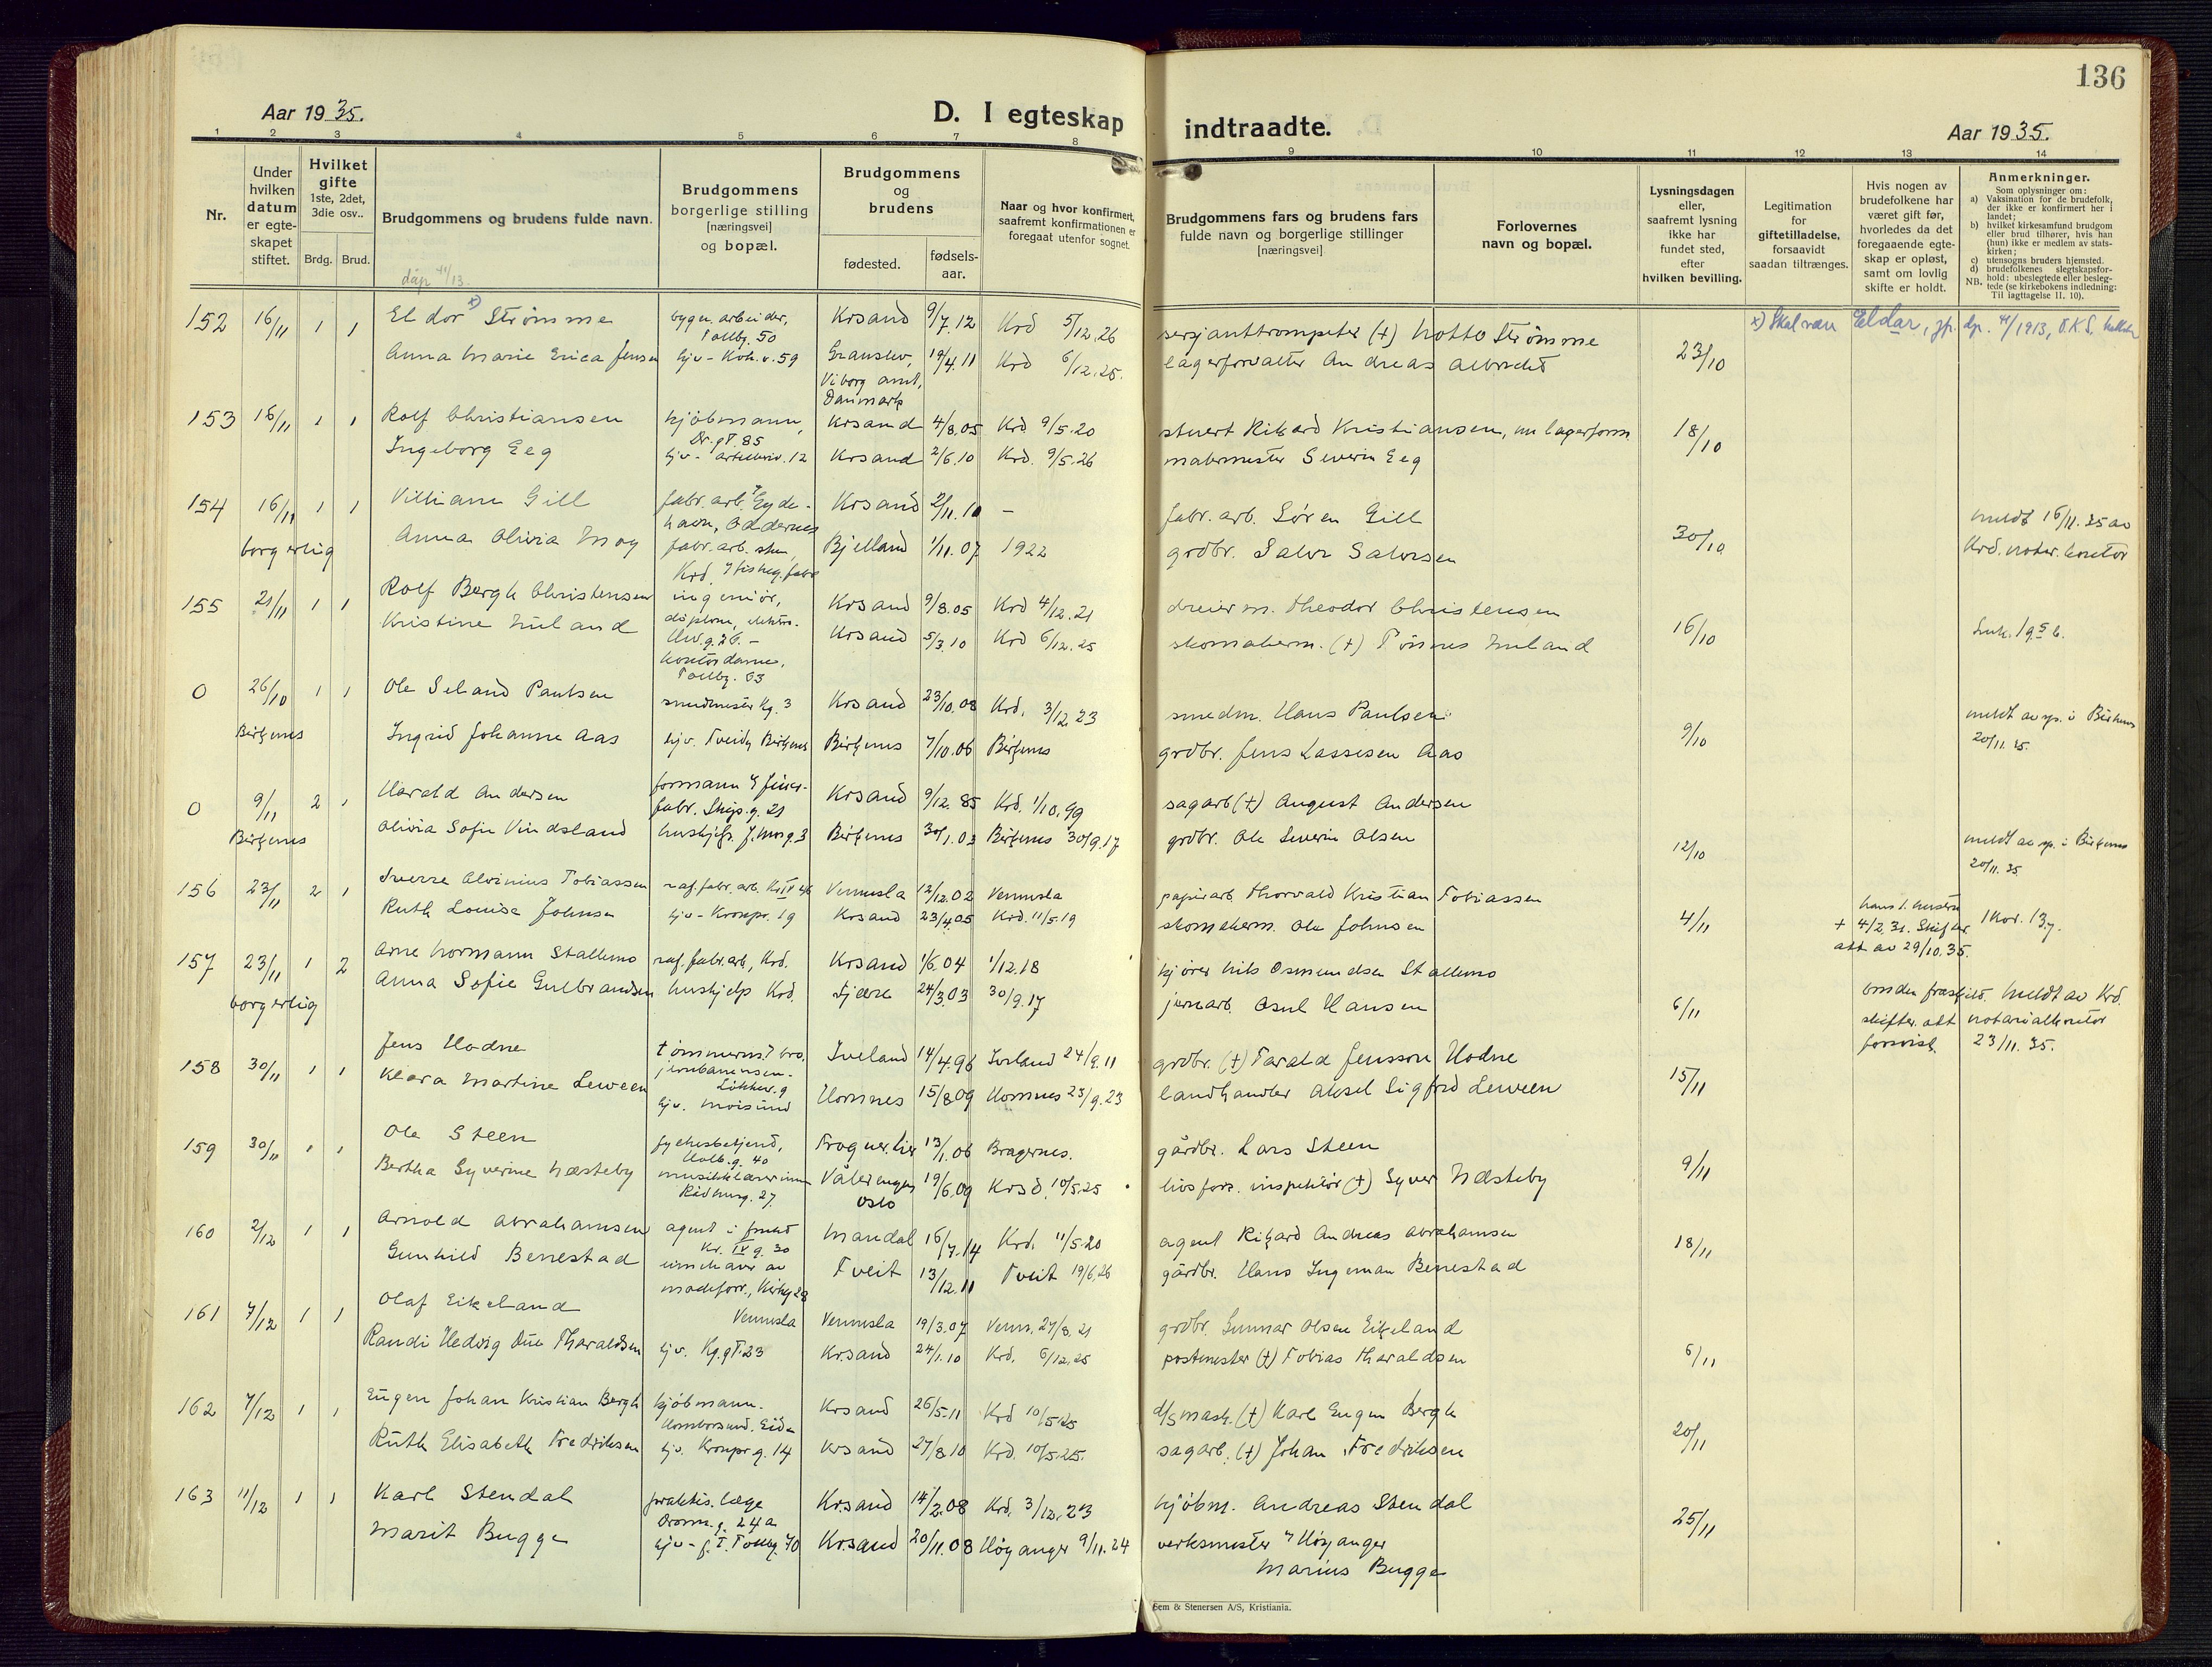 136
Aar 1935.
D. I egteskap indtraadte.
Aar 1935.
1 2 3 4 5 6 7 8 9 10 11 12 13 14
Nr.
Under hvilken datum er egteskapet stiftet.
Hvilket gifte 1ste, 2det, 3die osv..
Brdg. Brud.
Brudgommens og brudens fulde navn.
Brudgommens borgerlige stilling [næringsvei] og bopæl.
Brudgommens og brudens
fødested. fødsels-aar.
Naar og hvor konfirmert, saafremt konfirmationen er foregaat utenfor sognet.
Brudgommens fars og brudens fars fulde navn og borgerlige stillinger [næringsvei]
Forlovernes navn og bopæl.
Lysningsdagen eller, saafremt lysning ikke har fundet sted, efter hvilken bevilling.
Legitimation for giftetilladelse, forsaavidt saadan tiltrænges.
Hvis nogen av brudefolkene har været gift før, hvorledes da det foregaaende egteskap er opløst, samt om lovlig skifte er holdt.
Anmerkninger.
Som oplysninger om:
a) Vaksination for de brudefolk, der ikke er konfirmert her i landet;
b) hvilket kirkesamfund brudgom eller brud tilhører, hvis han (hun) ikke er medlem av statskirken;
c) utensogns bruders hjemsted.
d) brudefolkenes slegtskapsforhold: ubeslegtede eller beslegtede (se kirkebokens indledning: Til iagttagelse II. 10).
NB.
152 16/11 1 1 Eldor x) Strømme bygn. arbeider, Tollbg. 50 Krsand 9/7.12 Krd 5/12.26 serjanttrompeter (+) Notto Strømme x) Skal være Eldar,
Anna Marie Erica Jensen hjv - Koh.v. 59 Granslev, Viborg amt, Danmark 19/4.11 Krd 6/12.25. lagerforvalter Andreas 23/10
153 16/11 1 1 Rolf Christiansen kjøbmann, Dr.gt. 85 Krsand 4/8.05 Krd 9/5.20 stuert Rikard Kristiansen, nu lagerform. 18/10
Ingeborg Eeg hjv - 12 Krsand 2/6.10 Krd. 9/5.26 malermester Severin Eeg
154 16/11 1 1 Villiam Gill fabr. arb. Eydehavn, Oddernes Krsand 2/11.10 - fabr. arb. Søren Gill 30/10 meldt 16/11.35 av
borgerlig Anna Olivia Moy fabr. arb. Krd. Bjelland 1/11.07 1922 grdbr. Salve Salvesen Krd. notar. kontor
155 21/11 1 1 Rolf Bergh Christensen ingeniør, diplom, elektro. Elv.g. 26. - Krsand 9/8.05 Krd 4/12.21 dreierm. Theodor Christensen 16/10
Kristine Nuland kontordame, Tollbg. 63 Krsand 5/3.10 Krd 6/12.25 skomakerm. (+) Tønnes Nuland Luk. 19 5 6.
0 26/10 1 1 Ole Seland Paulsen smedmester Kg. 3 Krsand 23/10.08 Krd. 3/12.23 smedm. Hans Paulsen 9/10 meldt av sp. i Birkenes
Birkenes Ingrid Johanne Aas hjv. Tveide Birkenes Birkenes 7/10.06 Birkenes grdbr. Jens Lassesen Aas 20/11.35.
0 9/11 2 1 Harald Andersen formann Skip.g. 21 Krsand 9/12.85 Krd. 1/10.99 sagarb (+) August Andersen 12/10 meldt av sp. i Birkenes
Birkenes Olivia Sofie Vindsland Birkenes 30/1.03 Birkenes 30/9.17 grdbr. Ole Severin Olsen 20/11.35
156 23/11 2 1 Sverre Alvinius Tobiassen raf. fabr. arb. Kr IV 46 Vennesla 12/12.02 Vennesla papirarb Thorvald Kristian Tobiassen 4/11
Ruth Louise Johnsen hjv - Kronpr. 19 Krsand 23/4.05 Krd. 11/5.19 skomakerm. Ole Johnsen hans 1. hustru + 4/2.31. Skifter. att av 29/10.35. 1 Kor. 13 7.
157 23/11 1 2 Arne Normann Stallemo raf. fabr. arb, Krd. Krsand 1/6.04 1/12.18 kjører Nils Osmundsen Stallemo 6/11
borgerlig Anna Sofie Gulbrandsen hushjelp Krd. Fjære 24/3.03 30/9.17 jernarb. Osul Hansen bruden fraskilt. skifter. att forevist. meldt av Krd. notarialkontor 23/11.35.
158 30/11 1 1 Jens Hodne tømmerm. jernbanen Iveland 14/4.96 Iveland 24/9.11 grdbr. (+) Tarald Jensson Hodne 15/11
Klara Martine Leween hjv. Moisund Hornnes 15/8.09 Hornnes 23/9.23 landhandler Aksel Sigfred Leween
159 30/11 1 1 Ole Steen fyllesbetjent, Holb.g. 40 Frogner, Lier 13/1.06 Bragernes. gårdbr. Lars Steen 9/11
Bertha Syverine Næsteby musikklærerinne Rådhusg. 27 Vålerengen Oslo 19/6.09 Krsd. 10/5.25 livsfors. inspektør (+) Syver Næsteby
160 2/12 1 1 Arnold Abrahamsen agent i Kr. IV g. 30 Mandal 16/7.14 Krd. 11/5.20 agent Rikard Andreas Abrahamsen 18/11
Gunhild Benestad innehaver av Tveit 13/12.11 Tveit 19/6.26 gårdbr. Hans Ingeman Benestad
161 7/12 1 1 Olaf Eikeland Vennesla Vennesla 19/3.07 Venn. 27/8.21 grdbr. Gunnar Olsen Eikeland 6/11
Randi Hedvig Due Tharaldsen hjv. Kg.gt. 23 Krsand 24/1.10 Krd. 6/12.25 postmester (+) Tobias Tharaldsen
162 7/12 1 1 Eugen Johan Kristian Bergh kjøbmann. Homborsund. Eide Krsand 26/5.11 Krd 10/5.25 d/s mask. (+) Karl Eugen Bergh 20/11
Ruth Elisabeth Fredriksen hjv. Kronpr.g. 14 Krsand 27/8.10 Krd. 10/5.25. sagarb. (+) Johan Fredriksen
163 11/12 1 1 Karl Stendal praktis. læge Dronn.g. 24a Krsand 14/2.08 Krd. 3/12.23 kjøbm. Andreas Stendal 25/11
Marit Bugge hjv - Tollbg. 70 Krsand 20/11.08 Høyanger 9/11.24 verksmester Høyanger
Marius Bugge
Sem & Stenersen A/S, Kristiania.